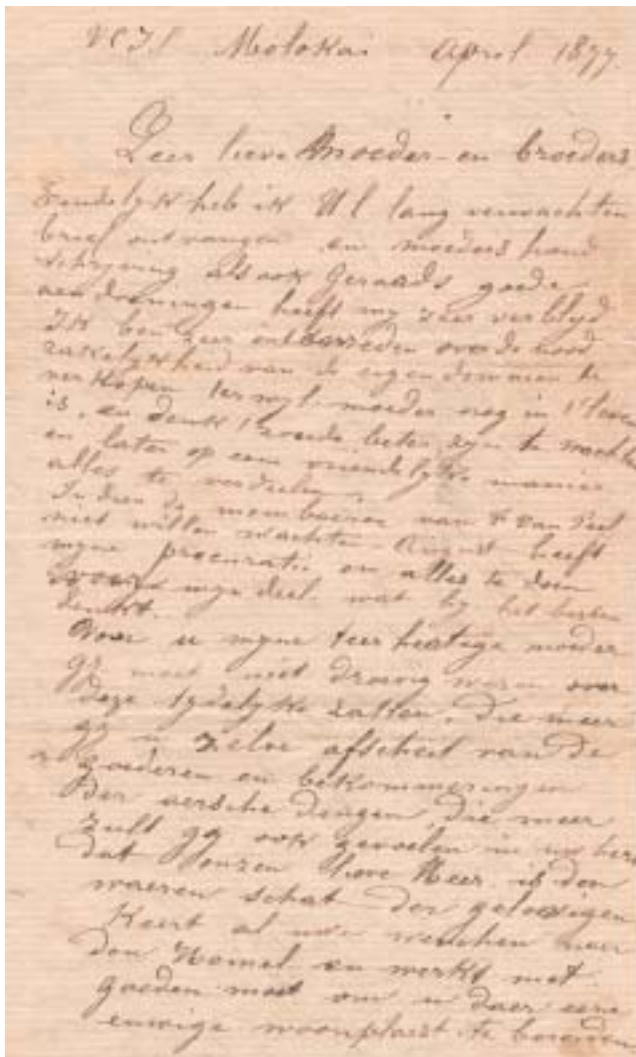 Molokai April 1877.
Zeer lieve Moeder en broeders
Eindelyk heb ik Ul lang verwachten
brief ontvangen en moeders hand
schryving alsook Geraads goede
heeft my zeer verblyd
Ik ben zeer over de nood
zakelykheid van de eigendommen te
verkopen terwyl moeder nog in t'leven
is, en denk t' beter zyn te wachten
en later op een vriendelyke manier
alles te verdeelen.
Indien de van
niet willen wachten - August heeft
myne procuratie om alles te doen
voor myn deel wat hy het besten
denkt.
Voor u myne teerhertige moeder
gy moet niet droevig wezen over
deze tydelyke zaken. Die meer
gy u zelve afscheit van de
goederen en bekommeringen
der aersche dingen, die meer
zult gy ook gevoelen in uw hert
dat onzen lieve Heer is den
waeren schat der geloovigen
Keert al uwe wenschen naer
den Hemel en werkt met
goeden moet om u daer eene
euwige woonplaats te bereiden